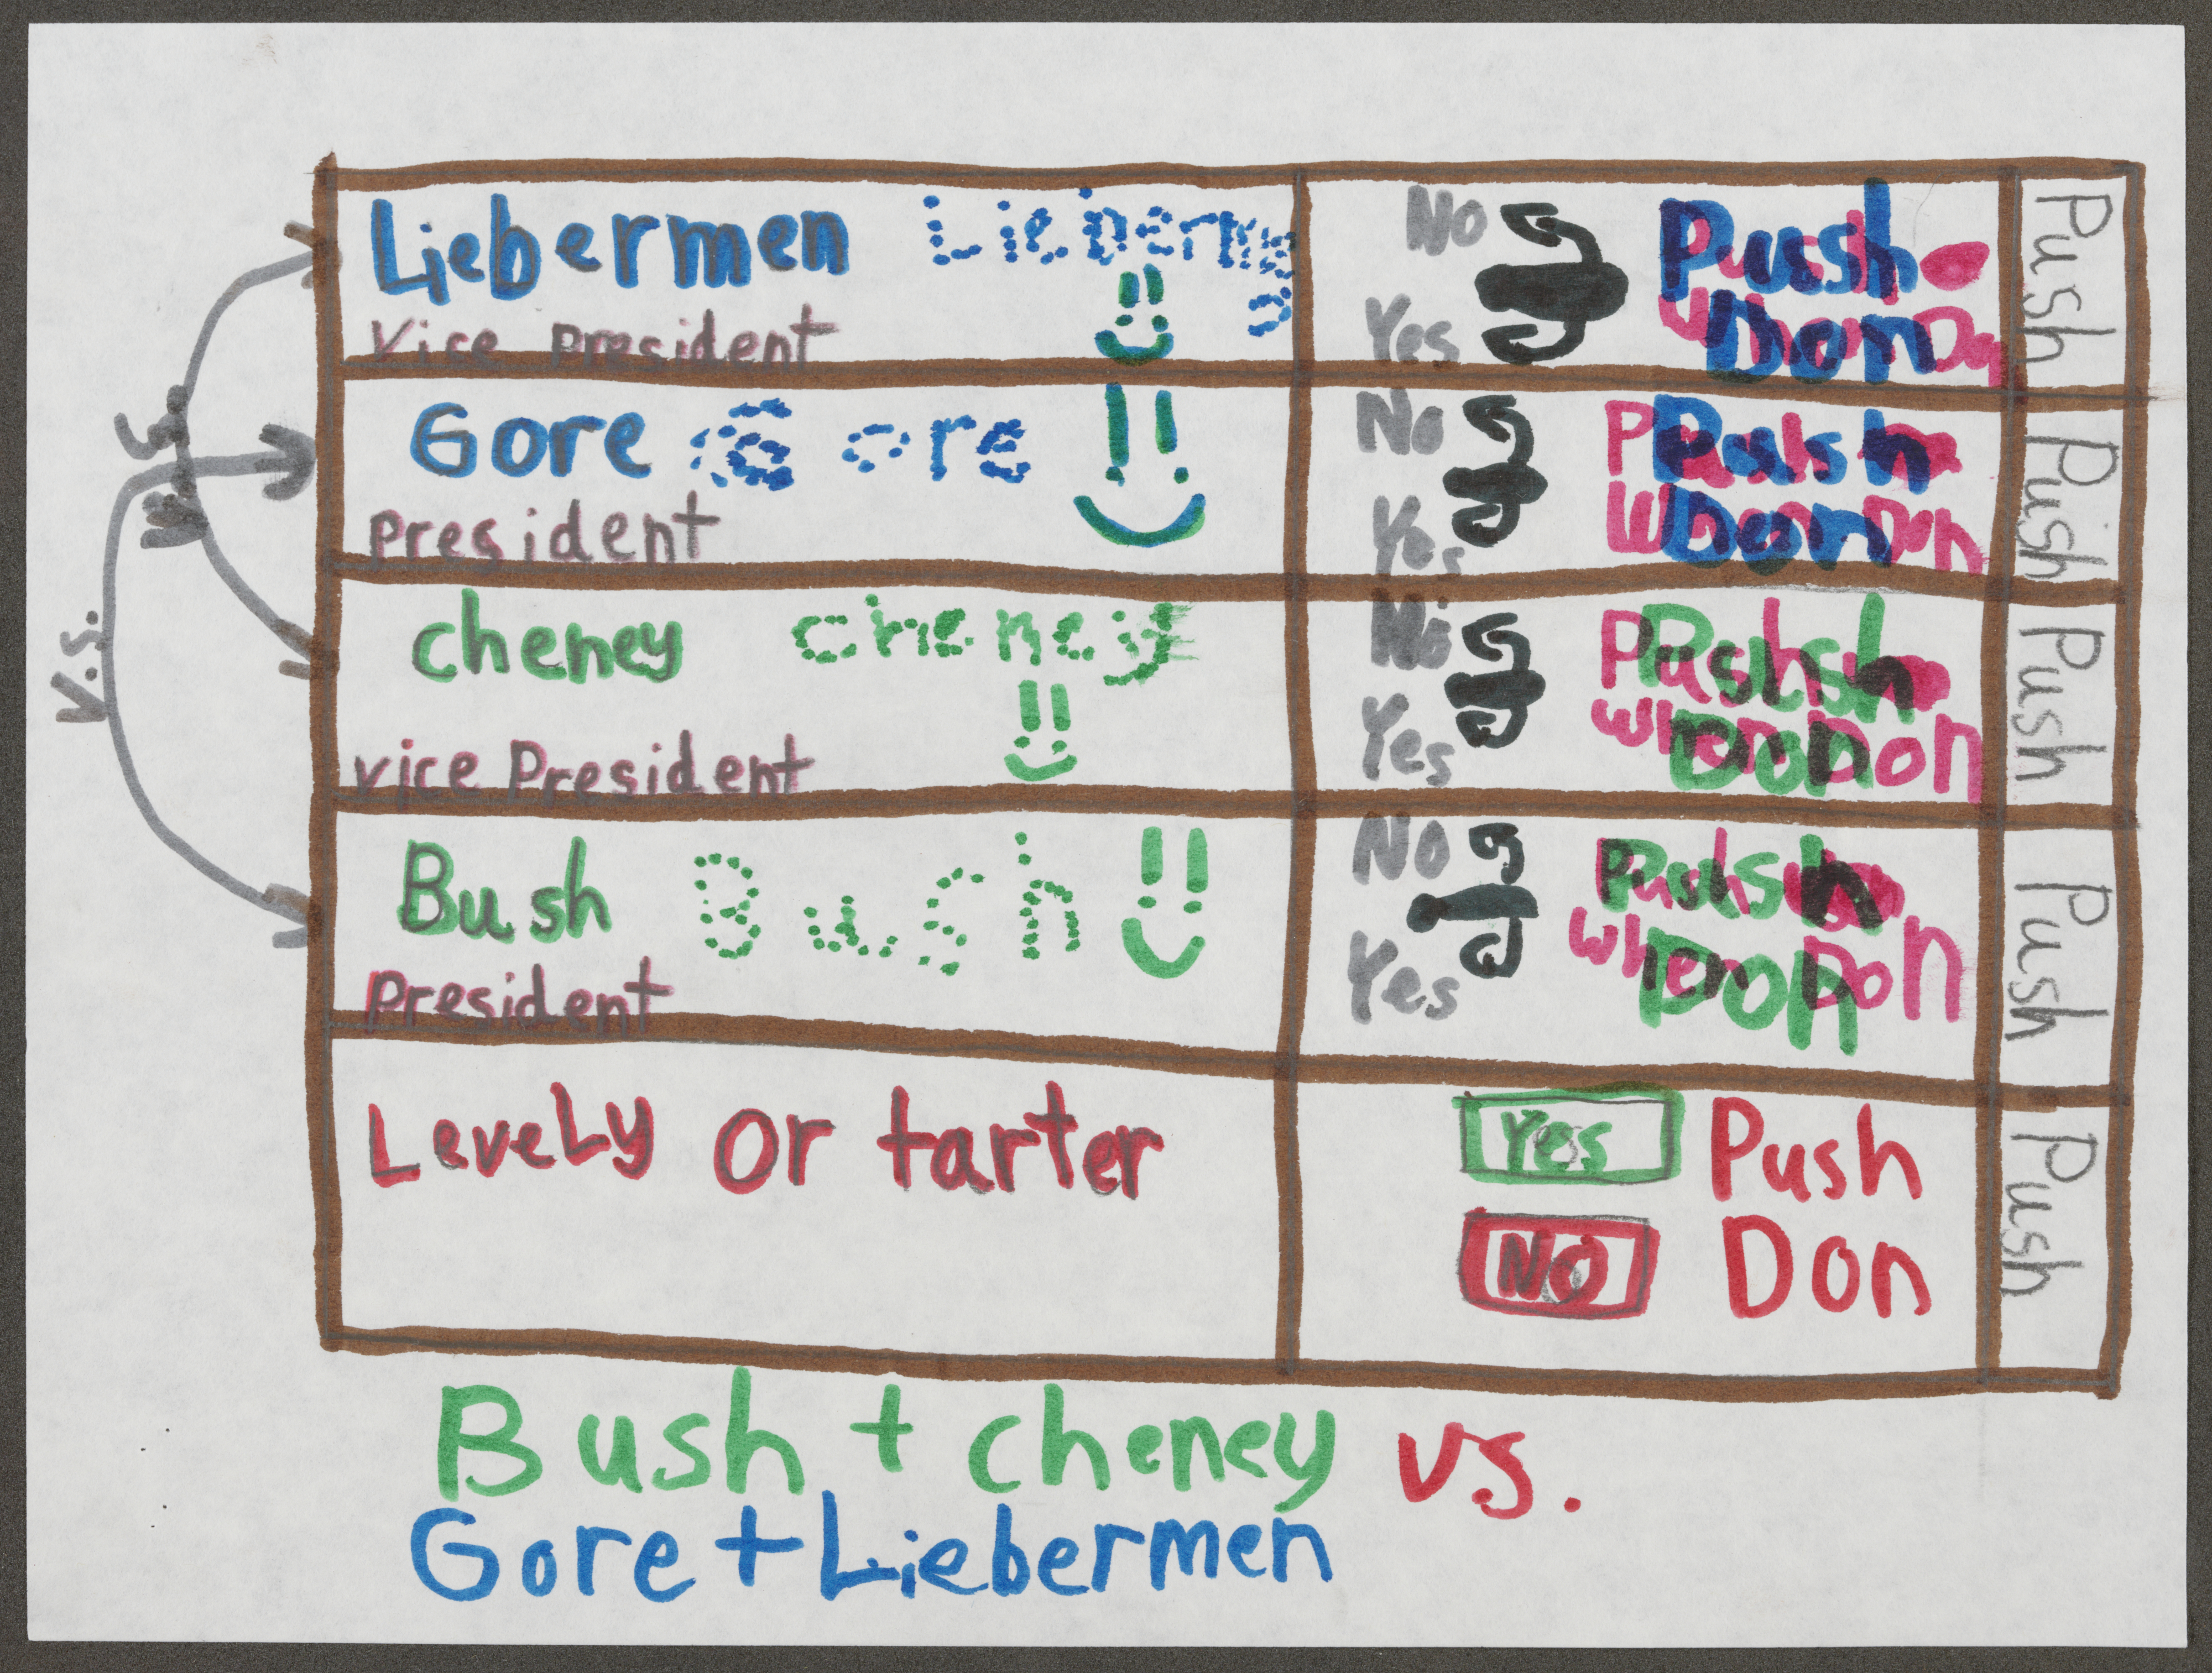 Liebermen Lieberme
n
Vice President
No
Yes
Push
Don
Push
Gore Gore
President
No
Yes
Push
When Don
Push
Don
Push
cheney cheney
vice President
No
Yes
Push
when Don
Push
Don
Push
Bush Bush
President
No
Yes
Push
when Don
Push
Don
Push
LeveLy or tarter
Yes Push
NO Don
Push
V.S.
V.S.
Bush + cheney vs.
Gore + Liebermen